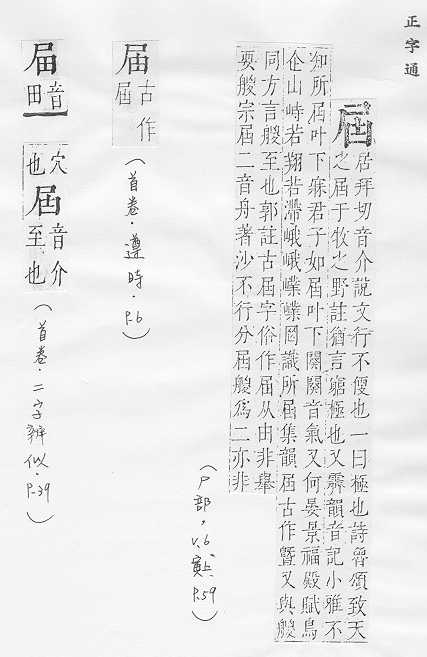 正字通
屆 居拜切音介說文行不便也一曰極也詩魯頌致天
之屆于牧之野註猶言窮極也又霽韻音記小雅不
知所屆叶下寐君子如屆叶下闋闋音氣又何晏景福殿賦鳥
企山峙若翔若滯峨峨嶫嶫罔識所屆集韻屆古作曁又與艐
同方言艐至也郭註古屆字俗作届从由非舉
要艐宗屆二音舟著沙不行分屆艐爲二亦非
(尸部,V.6 寅上 P.59)
届 古作屆
(首卷.遵時.P.6)
届 音田
穴也 屆 音介至也
(首卷.二字辨似.P.39)